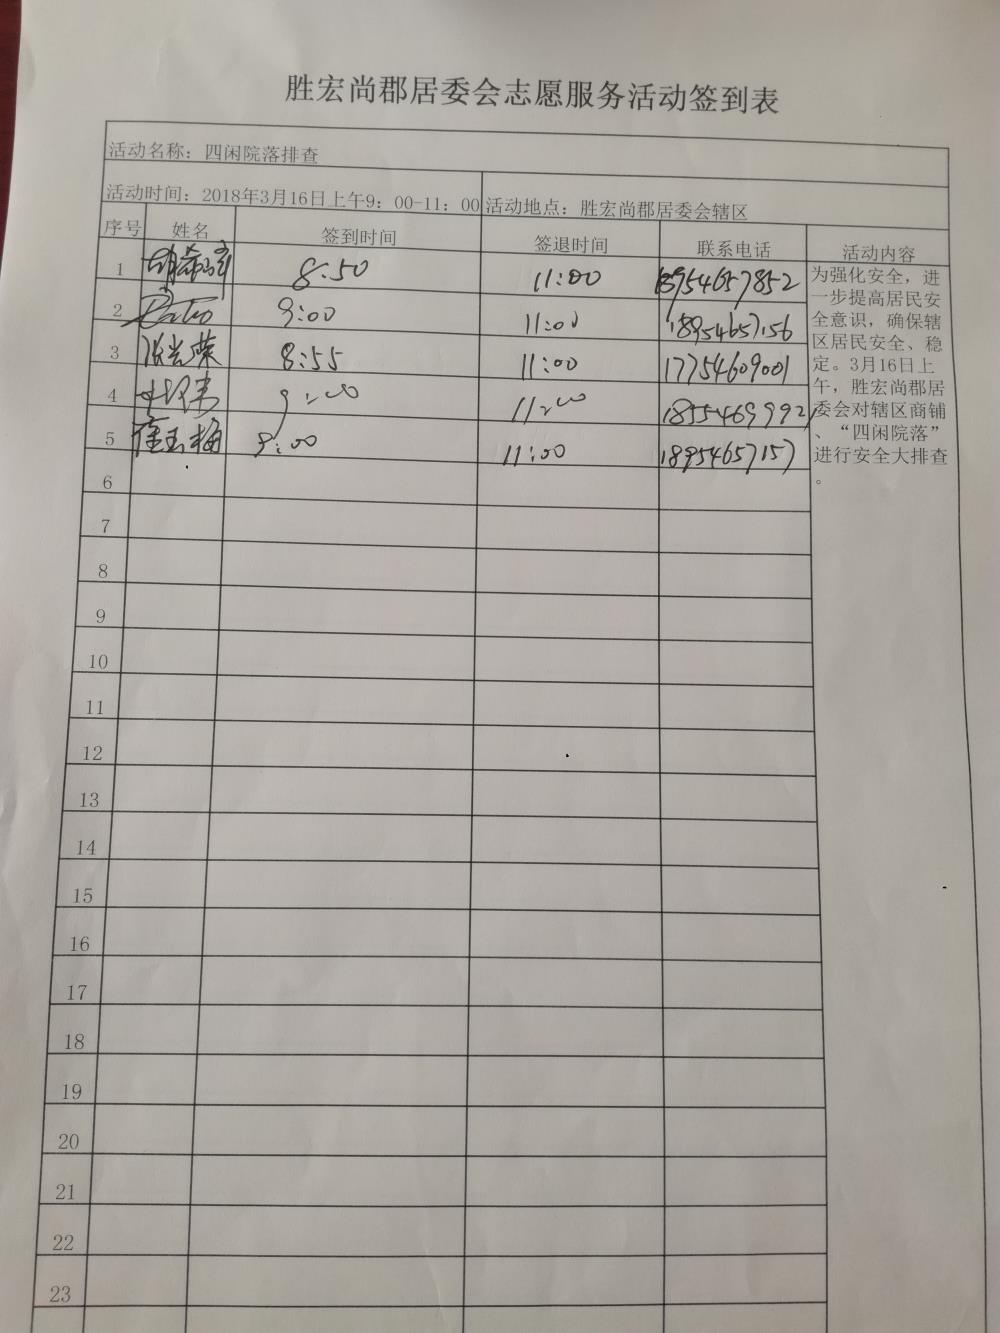 胜宏尚郡居委会志愿服务活动签到表
活动名称：四闲院落排查
活动时间：2018年3月16日上午9：00-11：00 活动地点：胜宏尚郡居委会辖区
序号 姓名 签到时间 签退时间 联系电话 活动内容
1 8:50 11:00 18954657852
2 9:00 11:00 18954657156
3 8:55 11:00 17754609001
4 9:00 11:00 18554699921
5 崔玉梅 9:00 11:00 18954657157
为强化安全，进
一步提高居民安
全意识，确保辖
区居民安全、稳
定。3月16日上
午，胜宏尚郡居
委会对辖区商铺
、“四闲院落”
进行安全大排查
。
6
7
8
9
10
11
12
13
14
15
16
17
18
19
20
21
22
23